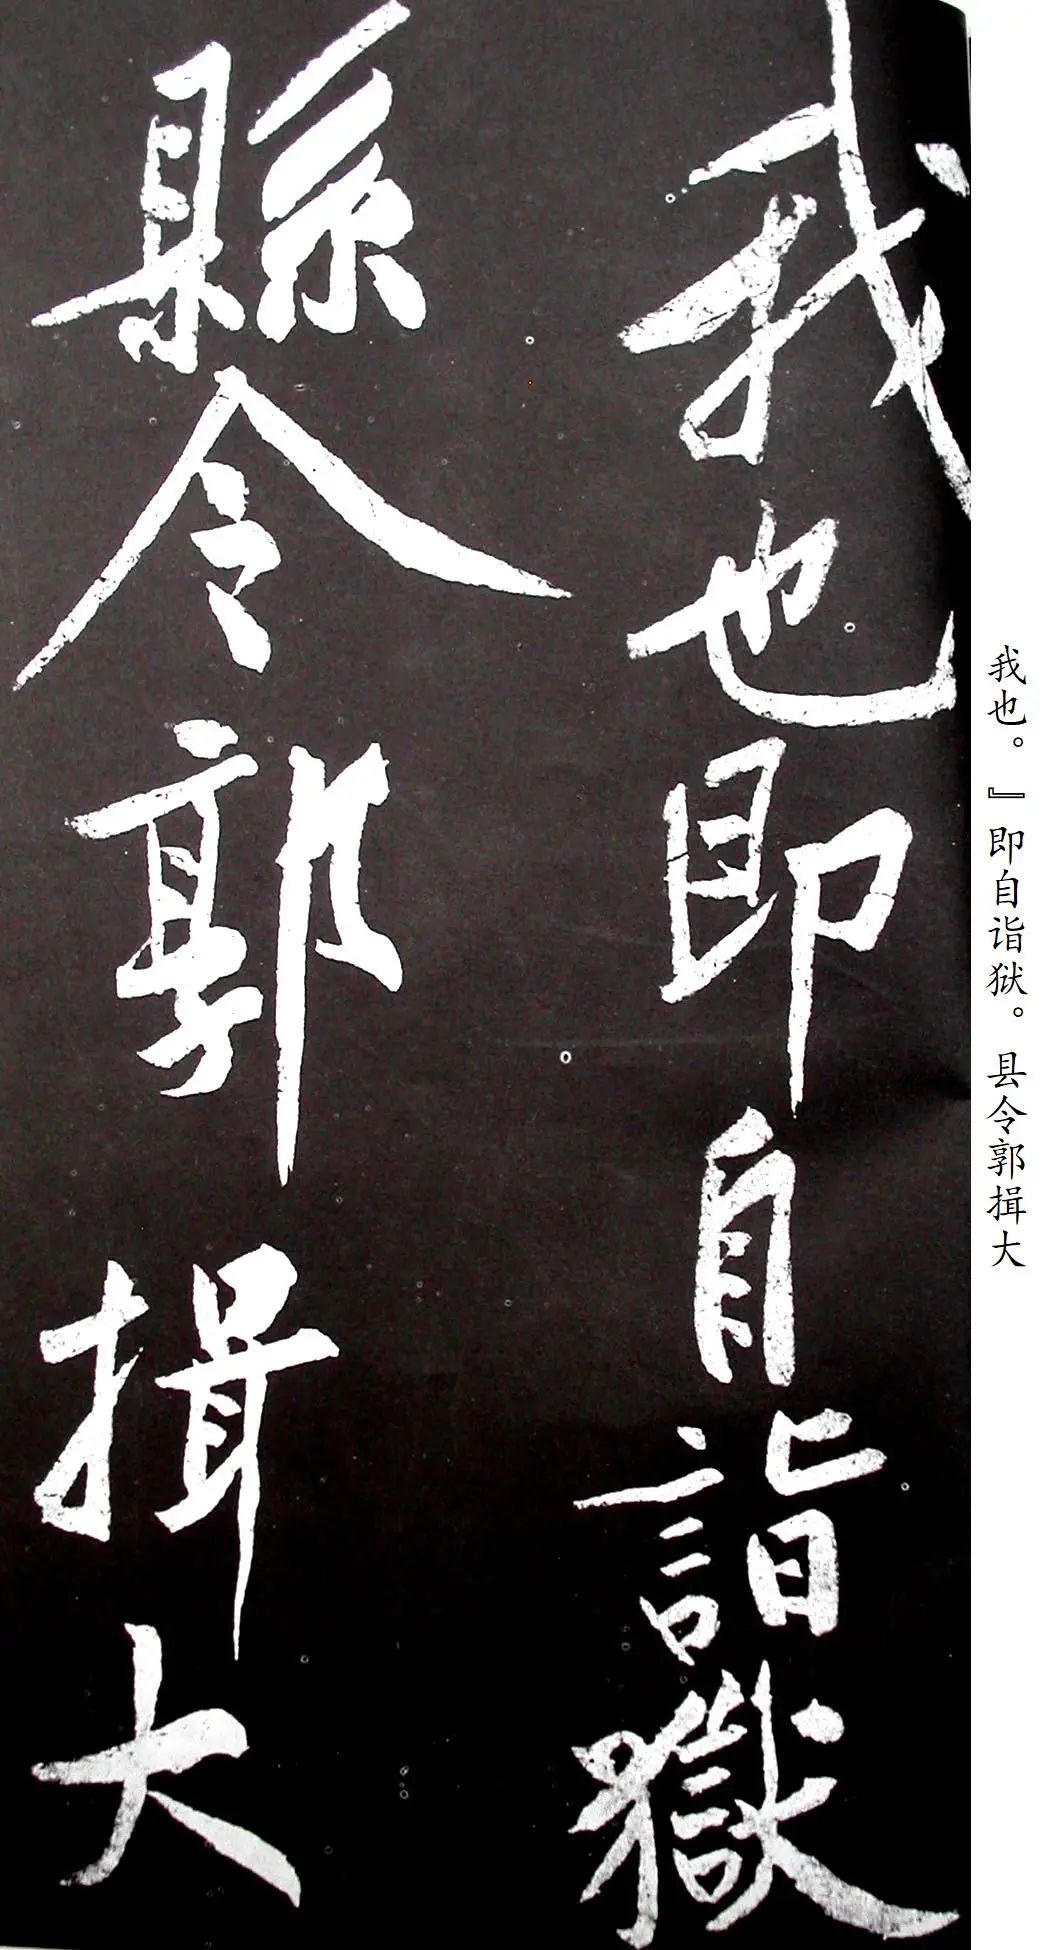 我也即自詣獄
縣令郭揖大
我也。』即自诣狱。县令郭揖大